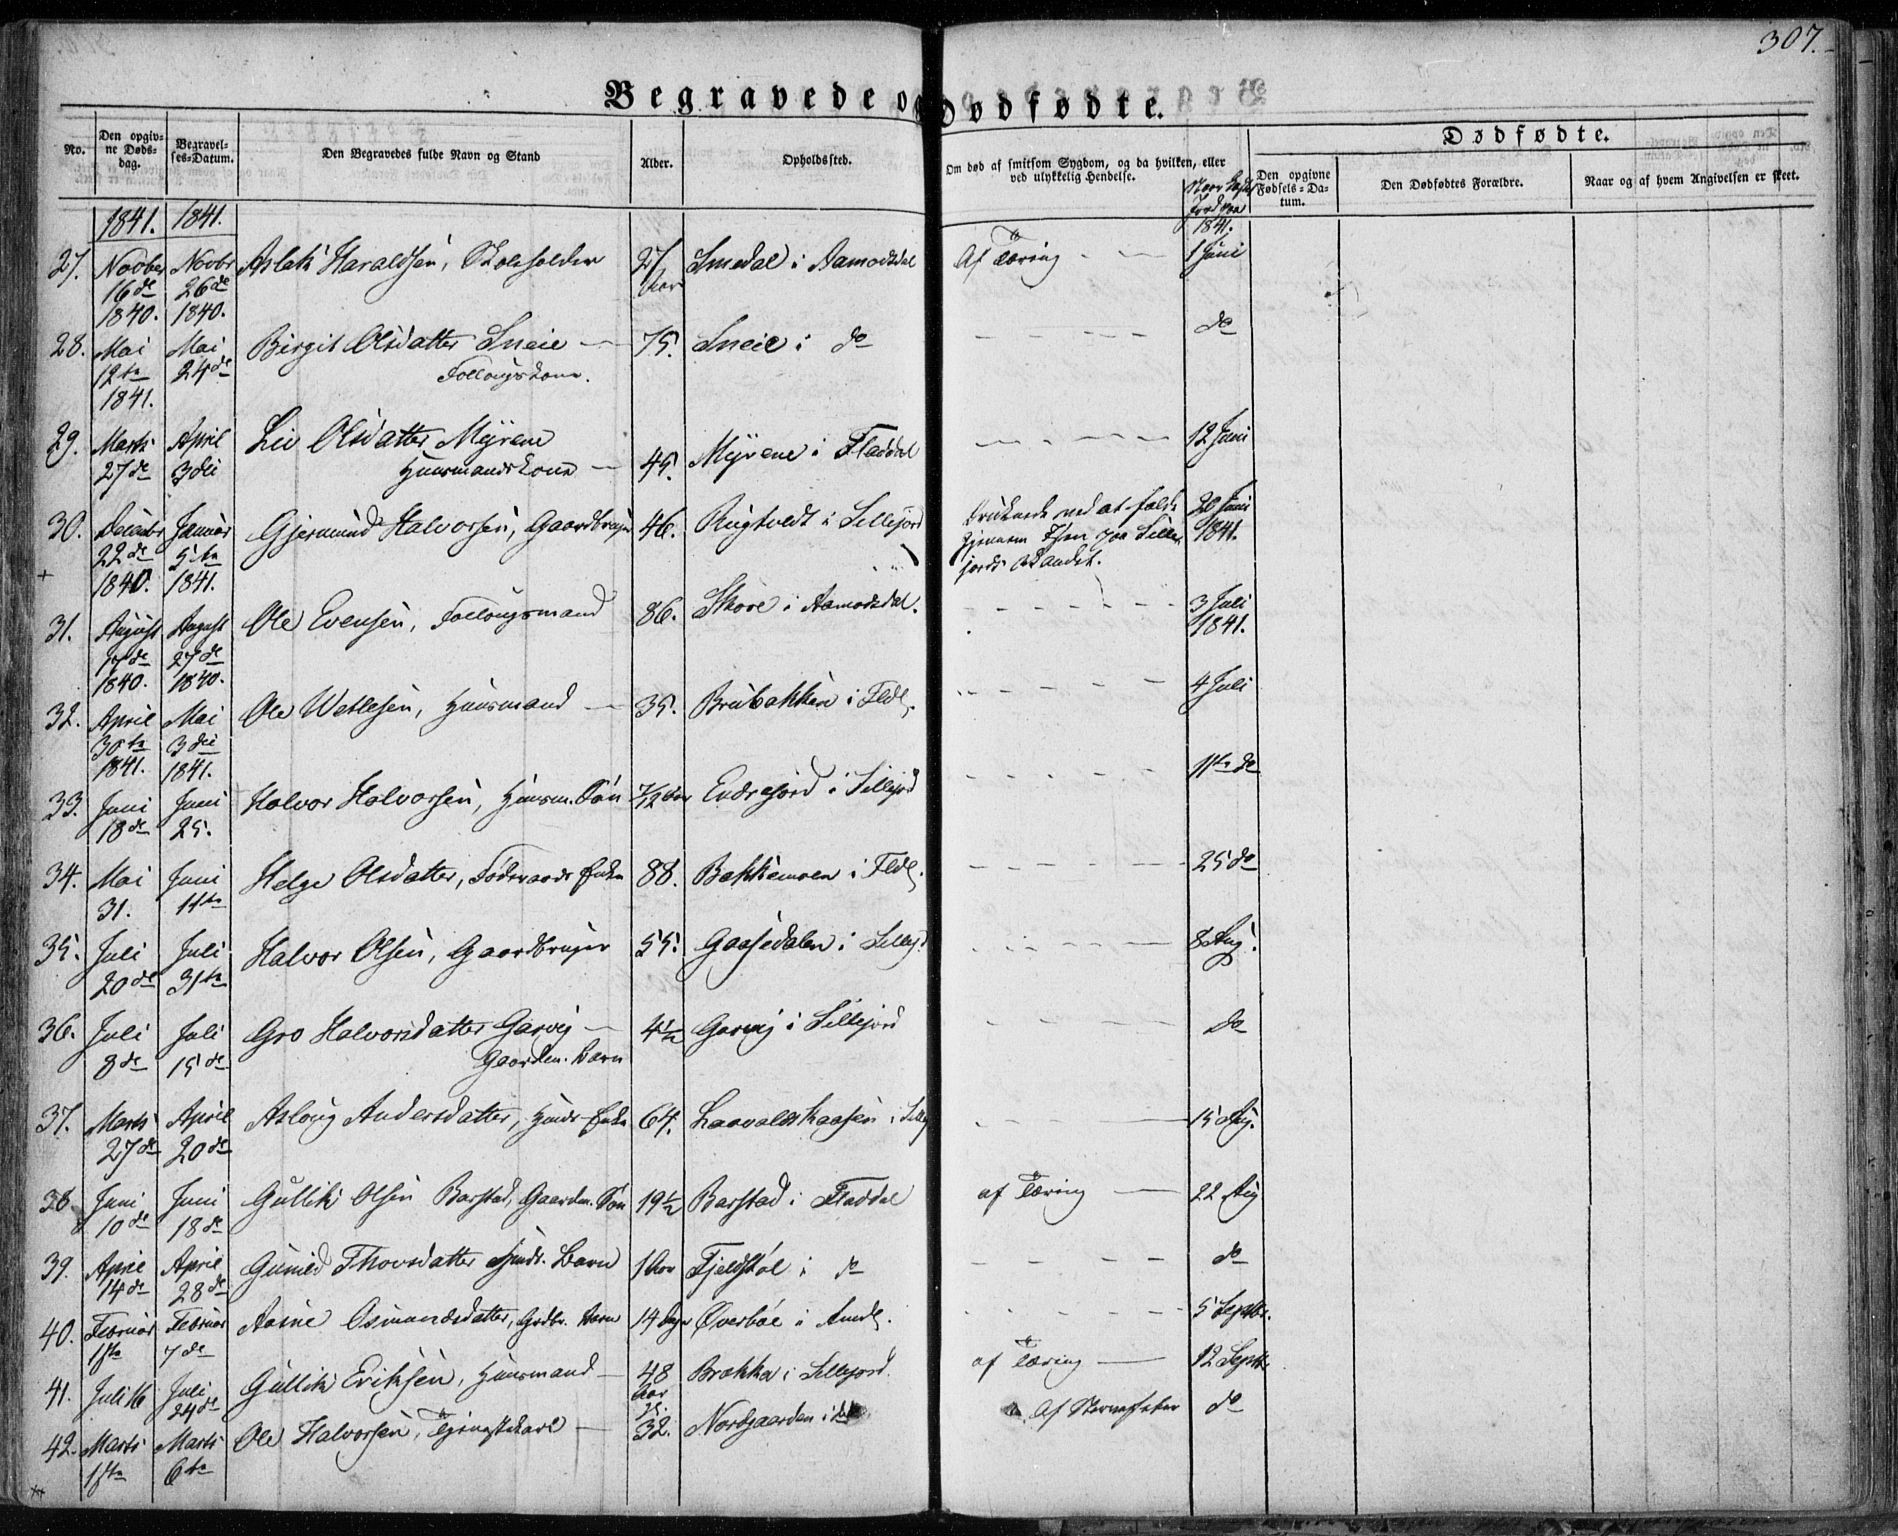 307.
Begravede og Dødfødte.
No.
Den opgiv-
ne Døds-
dag.
Begravel-
ses-Datum.
Den Begravedes fulde Navn og Stand
Alder.
Opholdssted.
Om død af smitsom Sygdom, og da hvilken, eller
ved ulykkelig Hendelse.
Dødfødte.
Den opgivne
Fødsels-Da-
tum.
Den Dødfødtes Forældre.
Naar og af hvem Angivelsen er skeet.
1841. 1841. 1841.
27. Novbr Novbr Aslak Haraldsen, Skoleholder 27 Smedal i Aamodsdal Af Tæring 1 Juni
16de 26de Aar
1840. 1840.
28. Mai Mai Birgit Olsdatter Sneie 75. Sneie i do do
12te 24de Foellougskone.
1841.
29. Marts April Liv Olsdatter Myrene 45. Myrene i Fladdal 12 Juni
27de 3die Huusmandskone
30. Decbr Januar Gjermund Halvorsen, Gaardbruger 46. Rugtvedt i Sillejord Druknede ved at falde 20 Juni
22de 5te gjennem Isen paa Sille- 1841.
1840. 1841. jords Vandet.
31. August August Ole Evensen, Foellougsmand 86. Skore i Aamodsdal. 3 Juli
17de 27de 1841.
1840. 1840.
32. April Mai Ole Wetlesen, Huusmand 35. Brubakken i Fldl. 4 Juli
30te 3die
1841. 1841.
33. Juni Juni Halvor Halvorsen, Huusm. Søn 7/12 Aar Endresjord i Sillejord 11te do
18de 25.
34. Mai Juni Helge Olsdatter, Føderaads Enke 88. Bakkemoen i Fldl. 25 do
31. 11te
35. Juli Juli Halvor Olsen, Gaardbruger 55. Gaasedalen i Sillejd. 8 Aug.
20de 31te
36. Juli Juli Gro Halvorsdatter Garvig 4½ Garvig i Sillejord do
8de 15de Gaardm. Barn
37. Marts April Asloug Andersdatter, Huds Enke 64. Laavaldskaasen i Sillej 15 Aug.
27de 20de
38. Juni Juni Gullik Olsen Barstad, Gaardm. Søn 19½ Barstad i Fladdal af Tæring 22 Aug
10de 18de
39. April April Gunild Thorsdatter Huds. Barn 1 Aar Fjeldstøl i do do
14de 28de
40. Februar Februar Aasne Osmundsdatter, Grdbr. Barn 14 Dage Øverbøe i Amdl. 5 Septbr.
1ste 7de
41. Juli 16 Juli Gullik Eriksen, Huusmand 48 Brække i Sillejord. af Tæring 12 Septbr.
24de Aar
42. Marts Marts Ole Halvorsen, Tjenestekarl 32. Nordgaarden i do Af Nervefeber do
1ste 6te